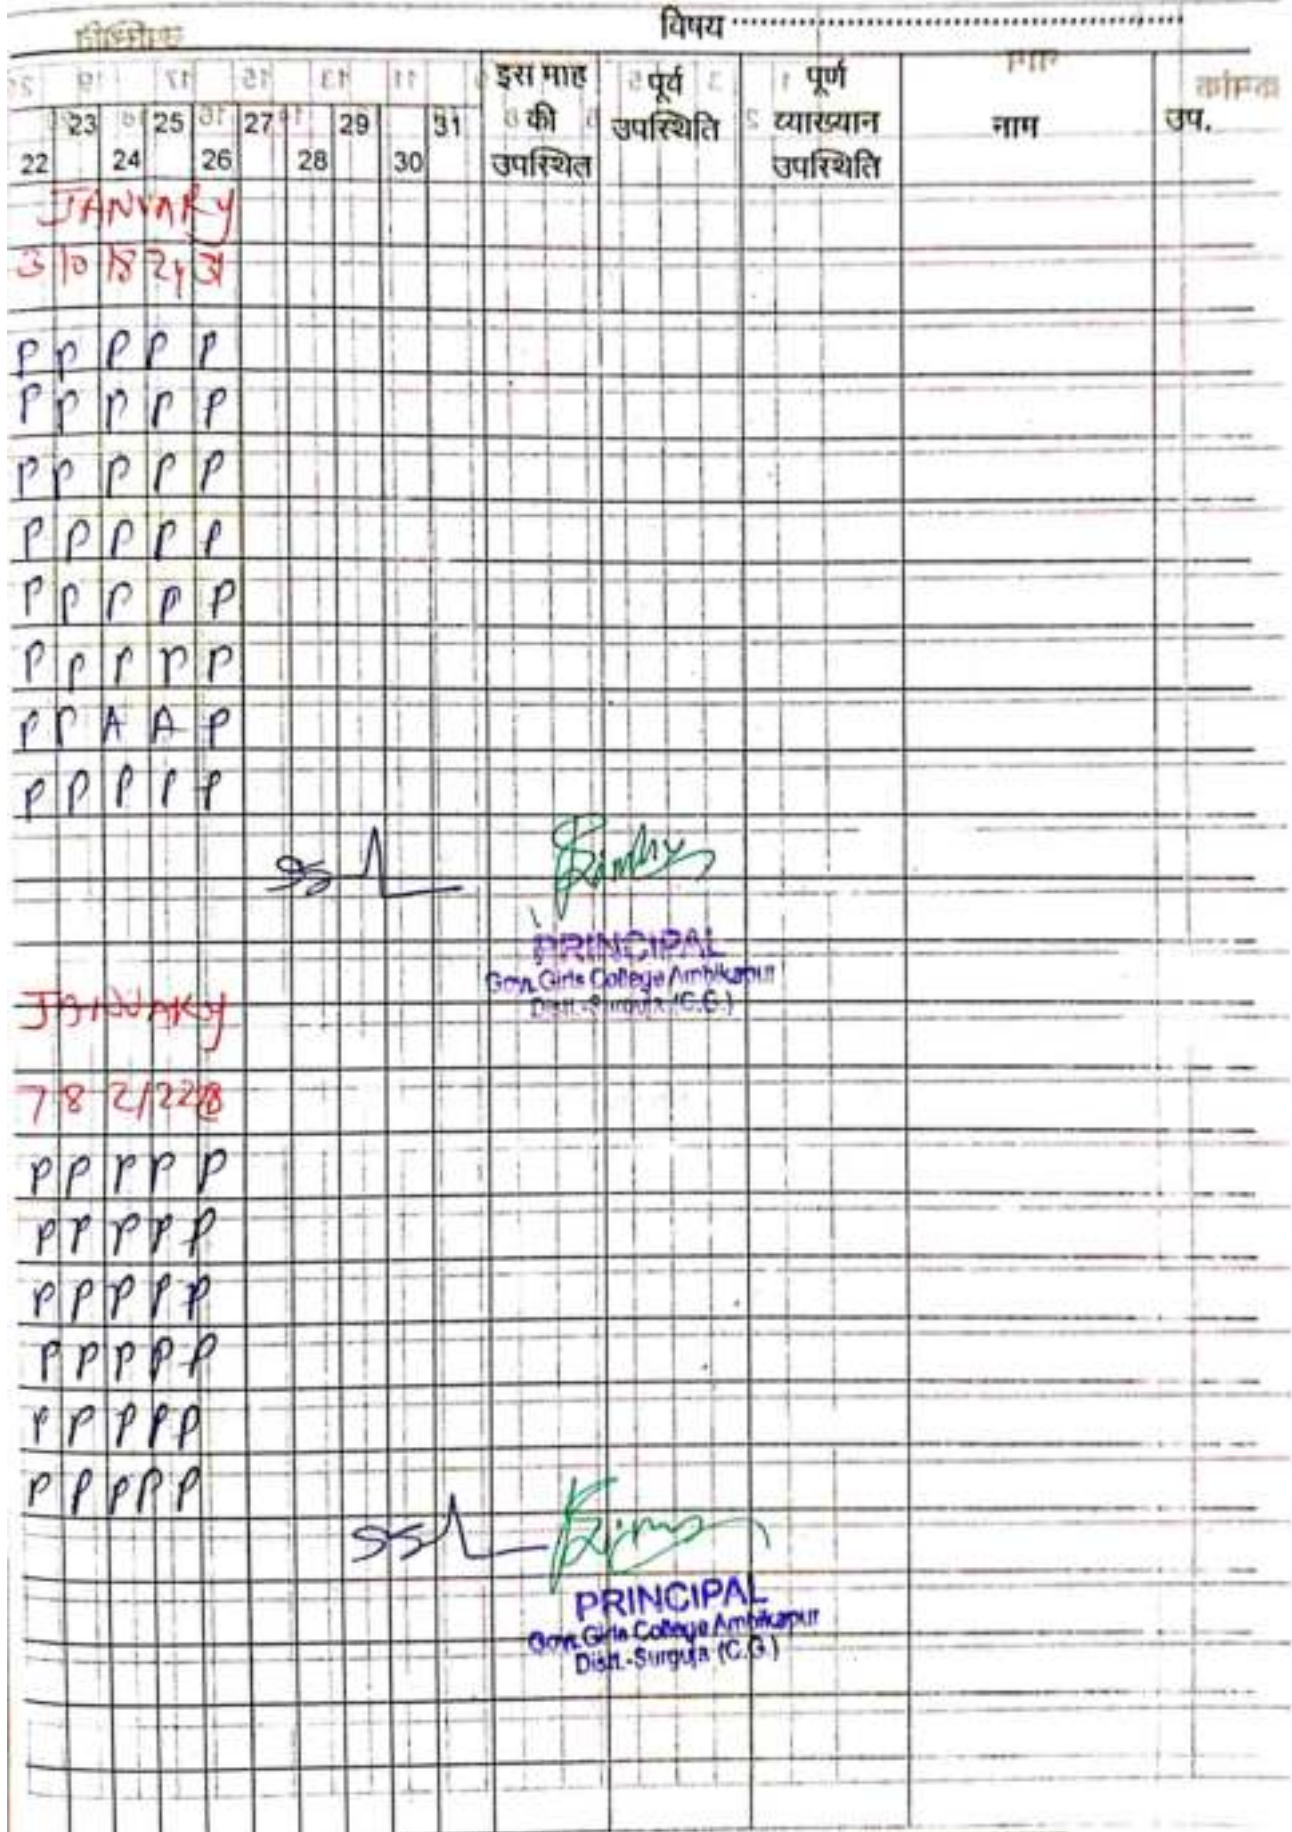 विषय
इस माह की उपस्थित
पूर्व उपस्थिति
पूर्ण व्याख्यान उपस्थिति
नाम
उप.
22 23 24 25 26 27 28 29 30 31
JANUARY
3 10 18 24 31
P P P P P
P P P P P
P P P P P
P P P P P
P P P P P
P P P P P
P P A A P
P P P P P
PRINCIPAL
Govt. Girls College Ambikapur
Distt.-Surguja (C.G.)
JANUARY
7 8 21 22 28
P P P P P
P P P P P
P P P P P
P P P P P
P P P P P
P P P P P
PRINCIPAL
Govt. Girls College Ambikapur
Distt.-Surguja (C.G.)